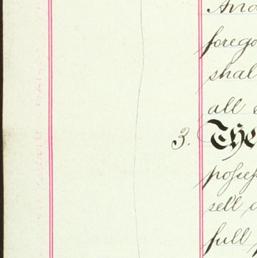 And
forego
shal
all
3. The
posses
sell
full